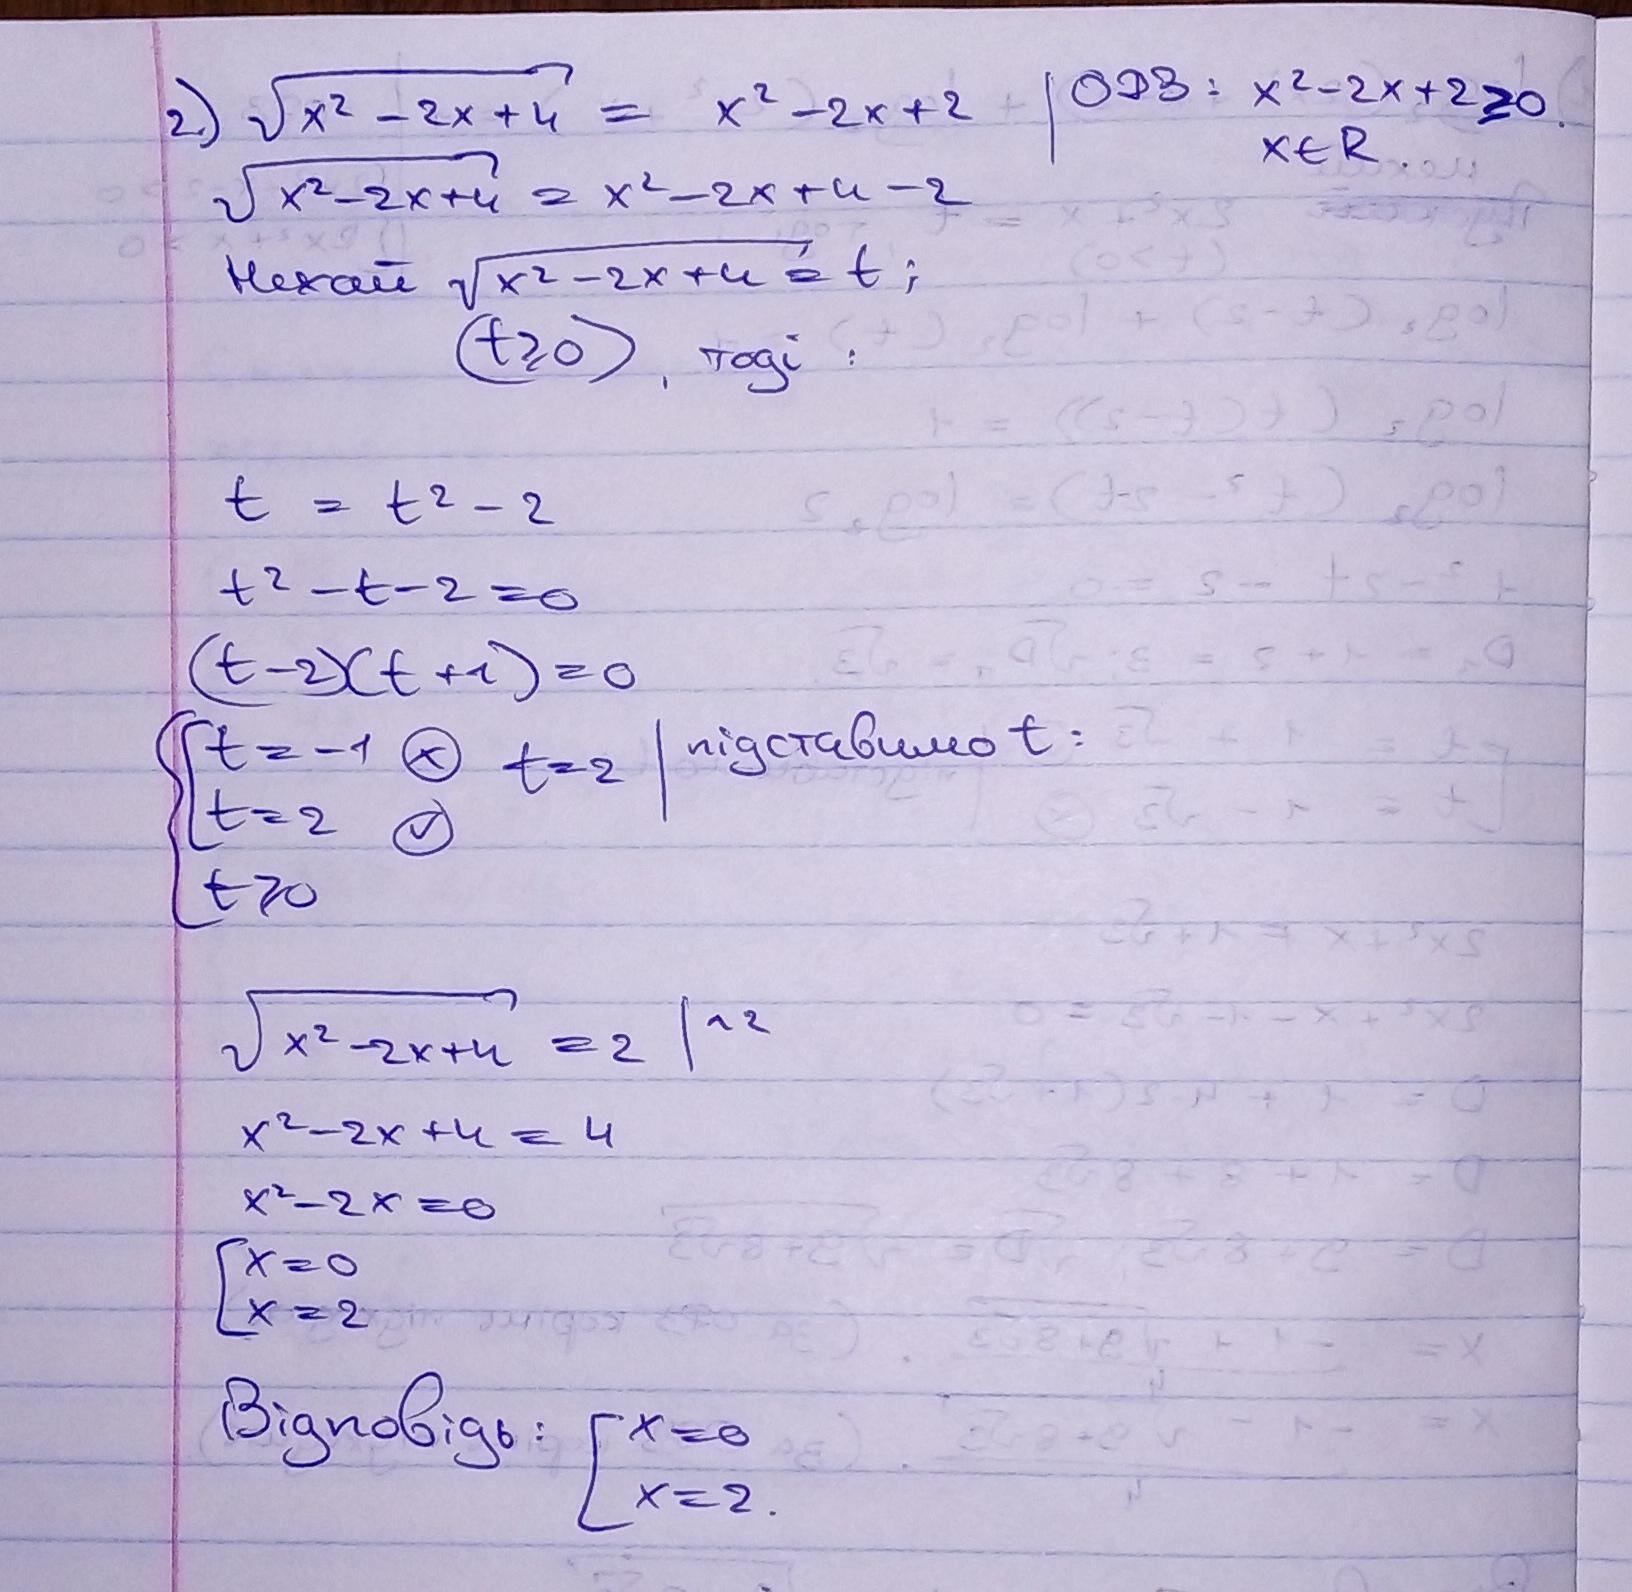 2.) √(x² - 2x + 4) = x² - 2x + 2 | ОДЗ: x² - 2x + 2 ≥ 0.
x ∈ R.
√(x² - 2x + 4) = x² - 2x + 4 - 2
Нехай √(x² - 2x + 4) = t;
(t ≥ 0), тоді:
t = t² - 2
t² - t - 2 = 0
(t - 2)(t + 1) = 0
{ [ t = -1 ⊗ t = 2 | підставимо t:
t = 2 ✓
t ≥ 0
√(x² - 2x + 4) = 2 | ^2
x² - 2x + 4 = 4
x² - 2x = 0
[ x = 0
x = 2
Відповідь: [ x = 0
x = 2.